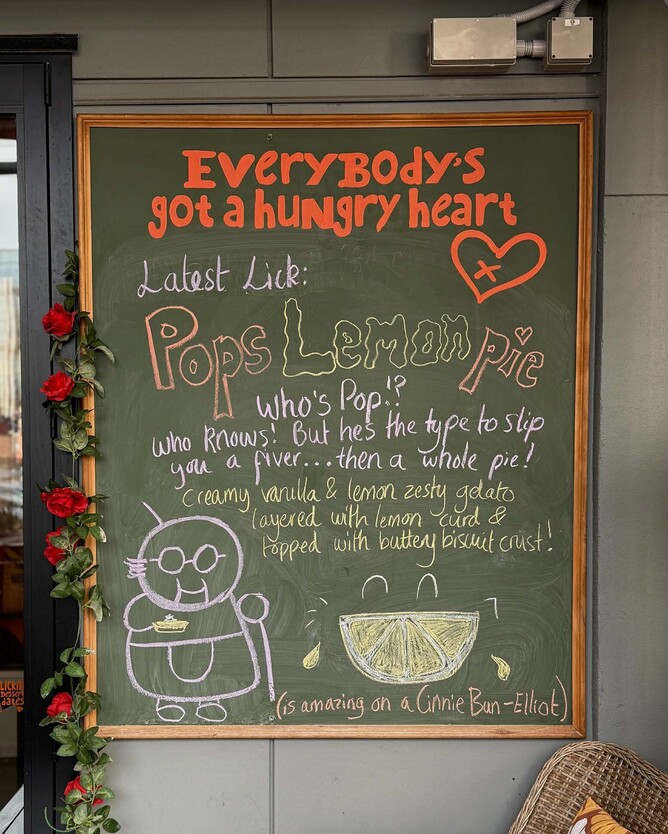 EVeryBody's
got a huNgry heart
Latest Lick:
Pops Lemon Pie
Who's Pop!?
Who knows! But hes the type to slip
you a fiver...then a whole pie!
creamy vanilla & lemon zesty gelato
layered with lemon curd &
topped with buttery biscuit crust!
(is amazing on a Cinnie Bun-Elliot)
LICKIN
DESSERT
dates